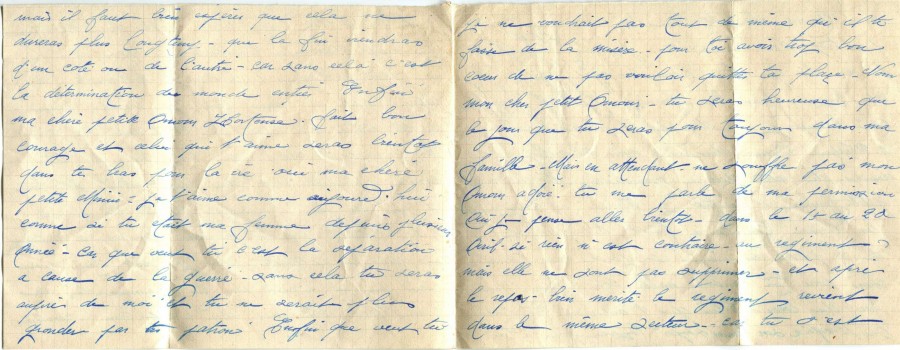 mais il faut bien espérer que cela ne
dureras plus longtemp - que la fin viendras
d'un coté ou de l'autre - car sans cela c'est
la détermination du monde entier Enfin
ma chère petite Amour Hortense. fait bon
courage et celui qui t'aime seras bientot
dans tu bras pour la vie oui ma chère
petite Mimi - Je t'aime comme aujourd'hui
comme si tu était ma femme depuis plusieurs
année - car que veut tu c'est la séparation
a cause de la guerre - sans cela tu seras
auprè de moi et tu ne serait plus
gronder par ton patron Enfin que veut tu
je ne voudrait pas tout de même qu'il te
fasse de la misère - pour toi avoir trop bon
coeur de ne pas vouloir quitter ta place - Non
mon cher petit Amour - tu seras heureuse que
le jour que tu seras pour toujours dans ma
famille - Mais en attendant - ne souffle pas mon
Amour adoré. tu me parle de ma permission
Oui je pense aller bientot - dans le 15 au 20
Avril - si rien n'est contraire - au regiment
mais elle ne sont pas supprimer - et aprè
le repos - bien merité le regiment revient
dans le même secteur - car tu s'est